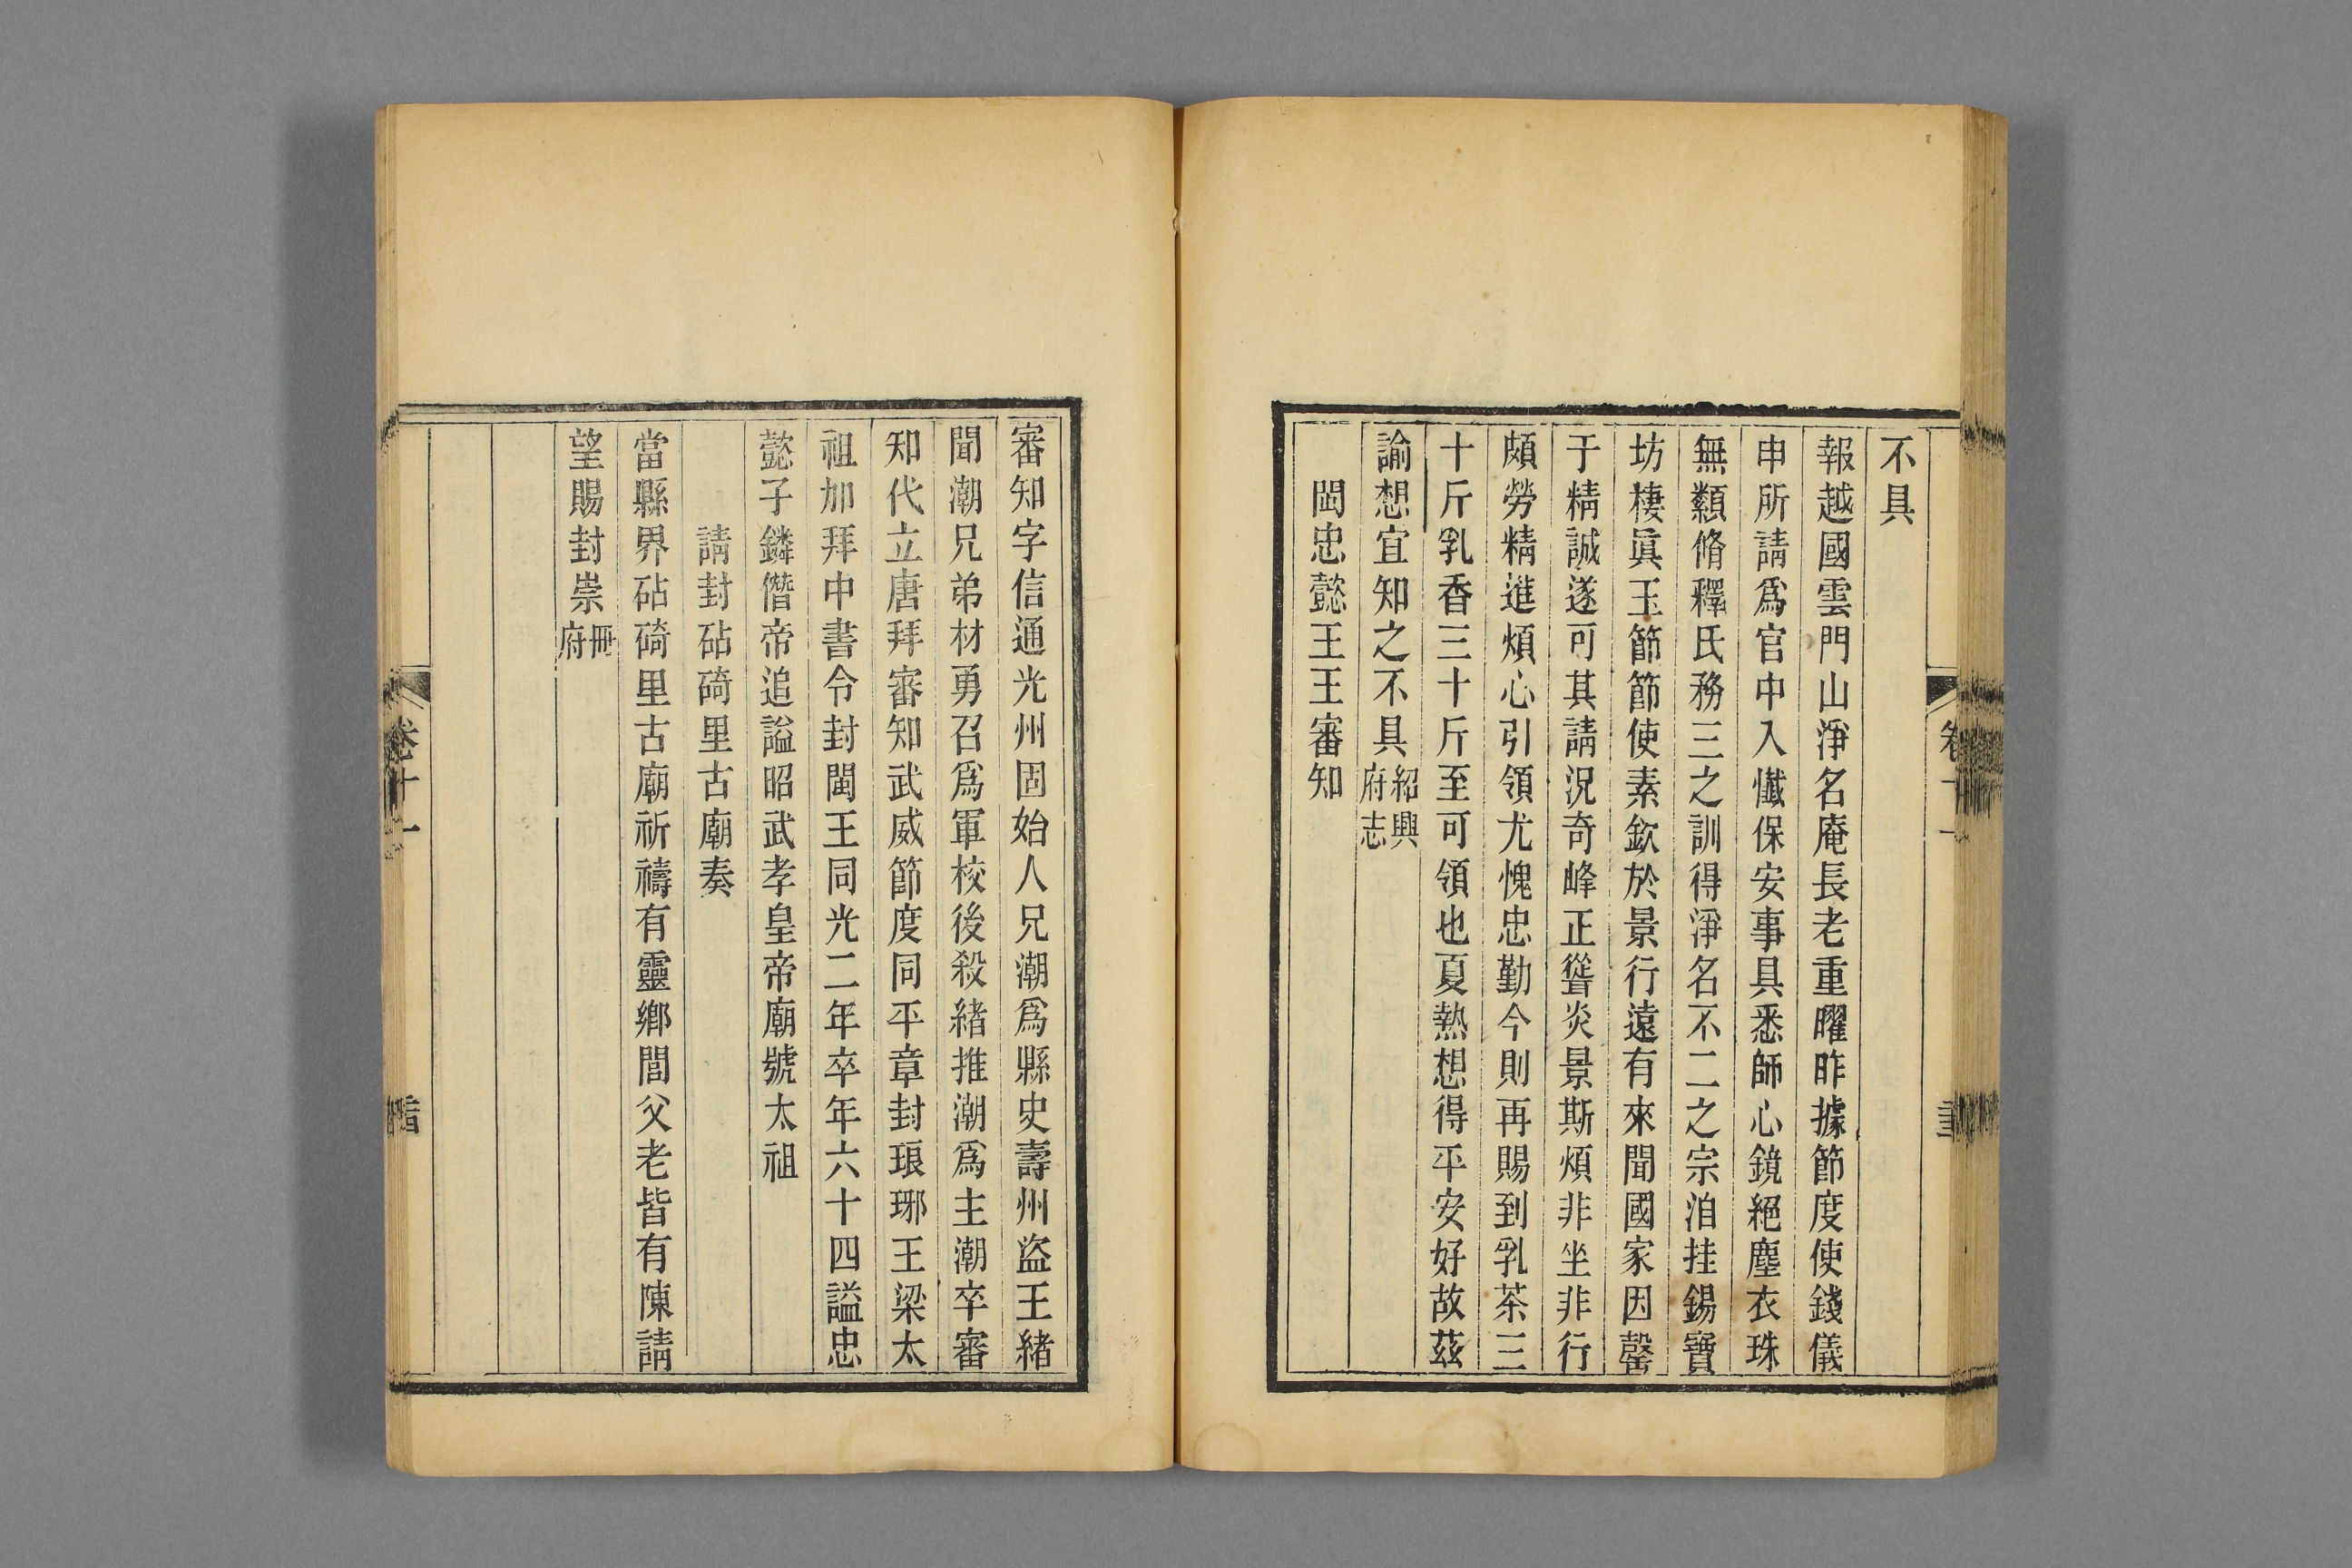 不具
報越國雲門山淨名庵長老重曜昨據節度使錢儀
申所請爲官中入懺保安事具悉師心鏡絕塵衣珠
無纇脩釋氏務三之訓得淨名不二之宗洎挂錫寶
坊棲眞玉節節使素欽於景行遠有來聞國家因罄
于精誠遂可其請況奇峰正聳炎景斯煩非坐非行
頗勞精進煩心引領尤愧忠勤今則再賜到乳茶三
十斤乳香三十斤至可領也夏熱想得平安好故茲
諭想宜知之不具紹興府志
閩忠懿王王審知
審知字信通光州固始人兄潮爲縣史壽州盜王緒
聞潮兄弟材勇召爲軍校後殺緒推潮爲主潮卒審
知代立唐拜審知武威節度同平章封琅琊王梁太
祖加拜中書令封閩王同光二年卒年六十四謚忠
懿子鏻僭帝追謚昭武孝皇帝廟號太祖
請封砧碕里古廟奏
當縣界砧碕里古廟祈禱有靈鄉閭父老皆有陳請
望賜封崇冊府
卷十一